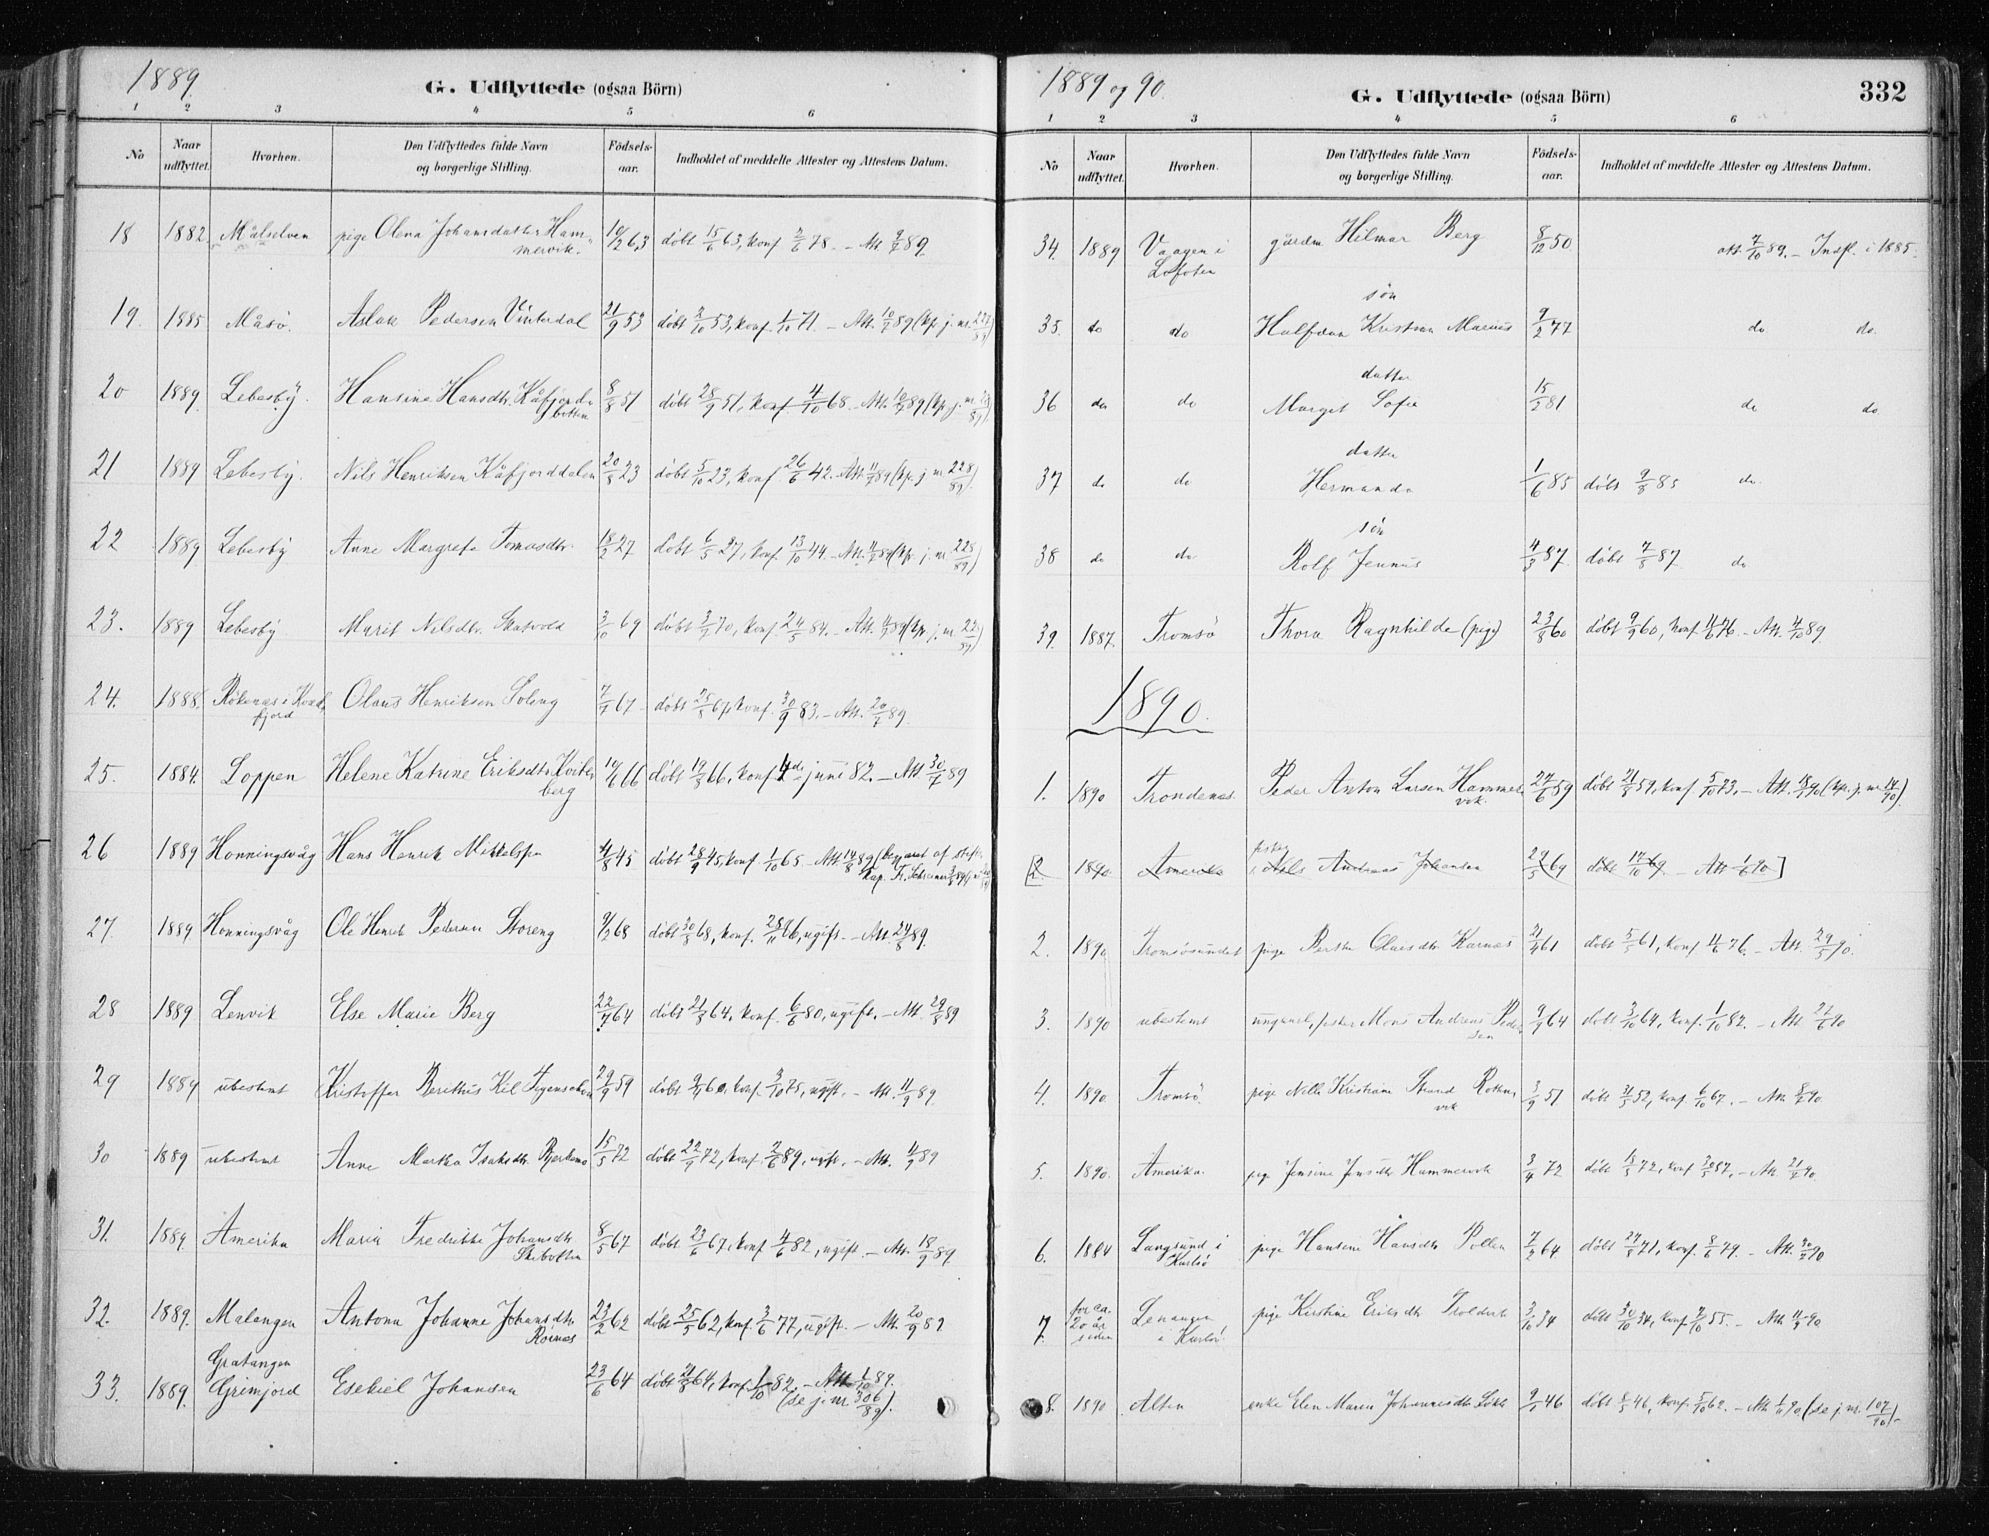 1889
G. Udflyttede (ogsaa Börn)
1 2 3 4 5 6
No Naar udflyttet. Hvorhen. Den Udflyttedes fulde Navn og borgerlige Stilling. Födsels-aar. Indholdet af meddelte Attester og Attestens Datum.
18 1882 Målselven pige Olena Johansdatter Hammervik. 63 døbt 15/6 63, konf. 78. – Att. 89
19. 1885 Måsö. Aslak Pedersen Vinterdal 21/9 53 døbt 2/10 53, konf. 1/10 71. – Att. 89
20 1889 Lebesby. Hansine Hansdtr. Kåfjordbotten 8/8 51 døbt 28/9 51, konf 4/10 68. Att. 89
21 1889 Lebesby. Nils Henriksen Kåfjorddalen 20/8 23 døbt 5/10 23, konf 26/6 42. Att. 89
22 1889 Lebesby Anne Margrete Tomasdtr. 18/2 27 døbt 6/5 27, konf. 13/10 44. – Att. 89
23. 1889 Lebesby Marit Nilsdtr. Skatvold 3/10 69 døbt 70, konf. 24/5 84. – Att. 89
24. 1888. fjord Olaus Henriksen Soleng 67 døbt 25/8 67, konf. 30/9 83. – Att. 20/7 89.
25. 1884. Loppen Helene Katrine Eriksdtr. Kvitberg 66 døbt 19/8 66, konf 4de juni 82. – Att 30/7 89
26 1889 Honningsvåg Hans Henrik Mikkelsen 4/8 45 døbt 28/9 45, konf. 1/10 65 – Att 14/8 89
27. 1889 Honningsvåg Ole Henrik Pedersen Storeng 68 døbt 30/8 68, konf. ugift. – Att. 24/8 89.
28 1889 Lenvik Else Marie Berg 22/7 64 døbt 21/8 64, konf. 6/6 80, ugift. – Att. 29/8 89
29 1889 ubestemt Kristoffer Berthus Kil 29/9 59 døbt 60, konf. 3/10 75, ugift. – Att. 11/9 89
30 1889 ubestemt Anne Martha Isaksdtr. 15/5 72 døbt 22/9 72, konf. 2/6 89, ugift. – Att. 11/9 89
31. 1889. Amerika Maria Fredrikke Johansdtr. Skibotten 8/5 67 døbt 23/6 67, konf 4/6 82, ugift. – Att. 18/9 89.
32. 1889. Malangen Antona Johanne Johansdtr. 23/2 62 døbt 25/5 62, konf. 3/6 77, ugift. – Att. 20/9 89
33. 1889. Gratangen Grimjord Esekiel Johansen 23/6 64 døbt 64, konf. 1/10 82. – Att 1/10 89. (se j. nr. 306/89).
1889 og 90
G. Udflyttede (ogsaa Börn)
332
1 2 3 4 5 6
No Naar udflyttet. Hvorhen. Den Udflyttedes fulde Navn og borgerlige Stilling. Födsels-aar. Indholdet af meddelte Attester og Attestens Datum.
34. 1889 Vaagen i Lofoten gårdm Hilmar Berg 8/12 50 att 7/10 89. – Indfl. i 1885.
35. do do søn Halfdan Kristian Marius 9/2 77 do do.
36 do do datter Margit Sofie 15/2 81 do do.
37 do do datter Hermanda 1/6 85 døbt 9/8 85 do.
38 do do søn Rolf Jennus 4/3 87. døbt 7/8 87. do
39. 1887. Tromsö Thora Ragnhilde (pige) 23/8 60 døbt 9/9 60, konf. 76. – Att. 4/10 89
1890.
1. 1890 Trondenæs. Peder Anton Larsen Hammervik. 27/6 59 døbt 21/8 59, konf. 5/10 73. – Att. 90
[2 1890 Amerika Nils Andreas Johansen 29/5 69 døbt 17/10 69. – Att 1/6 90]
2. 1890 Tromsösundet pige Berthe Olaisdtr. Karnæs 21/4 61 døbt 5/5 61, konf. 76. – Att. 29/5 90.
3. 1890 ubestemt ungkarl, Mons Andreas Pedersen 9/9 64 døbt 3/10 64, konf. 1/10 82. – Att. 22/6 90
4. 1890. Tromsö. pige Kristiane Strand 3/9 51 døbt 52, konf. 6/10 67. – Att. 90
5. 1890. Amerika. pige Jensine Jensdtr. Hammervik 3/4 72 døbt 72, konf 87. – Att. 21/7 90.
6. 1884 Langsund i Karlsö pige Hansine Hansdtr. Pollen 7/2 64. døbt 27/8 71, konf. 8/6 79. – Att. 30/7 90
7. for ca. 20 år siden Lenangen i Karlsö. pige Kirstine Eriksdtr. 3/10 34 døbt 30/10 34, konf. 7/10 55. – Att. 11/9 90
8. 1890 Alten enke Elen Maria Johannesdtr. 46 døbt 8/5 46, konf. 5/10 62. – Att. 90 (se j. nr. 107/90).